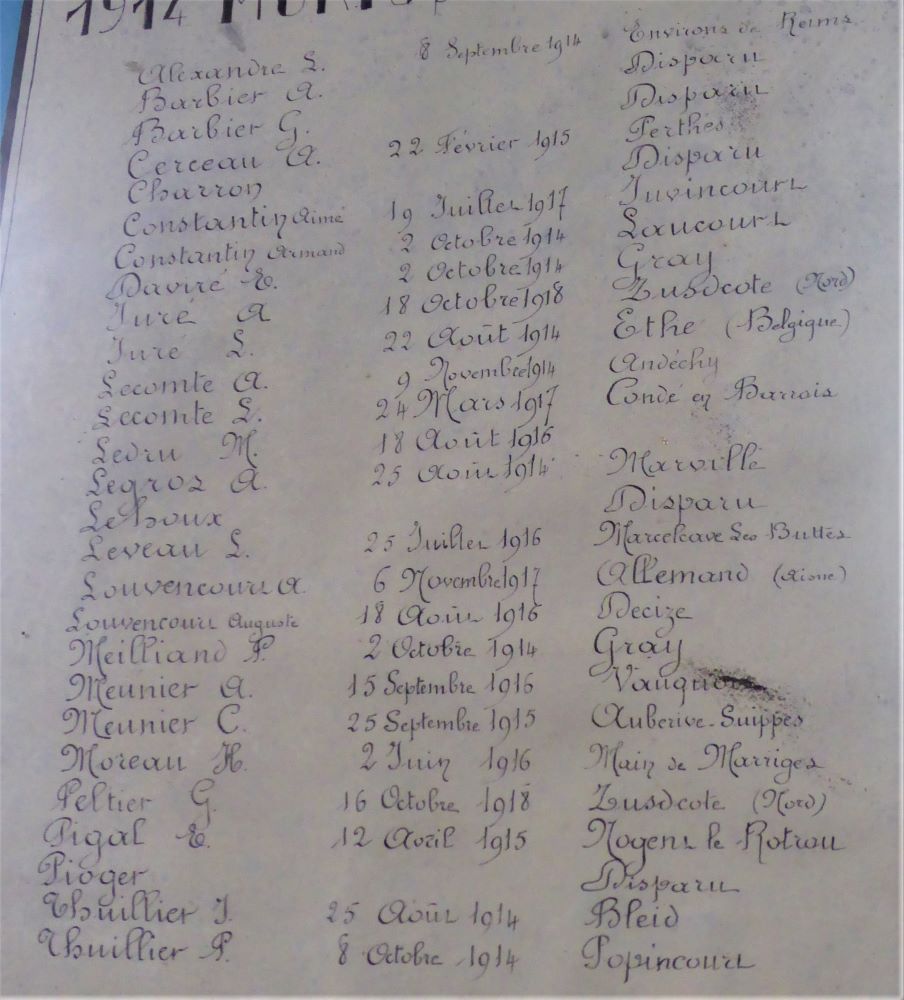 1914 MORTS
Alexandre L. 8 Septembre 1914 Environs de Reims
Barbier A. Disparu
Barbier G. Disparu
Cerceau A. 22 Février 1915 Perthes
Charron Disparu
Constantin Aimé 19 Juillet 1917 Juvincourt
Constantin Armand 2 Octobre 1914 Laucourt
Daviré E. 2 Octobre 1914 Gray
Juré A 18 Octobre 1918 Zusdcote (Nord)
Juré L. 22 Août 1914 Ethe (Belgique)
Lecomte A. 9 Novembre 1914 Andéchy
Lecomte L. 24 Mars 1917 Condé en Barrois
Ledru M. 18 Août 1916
Legros A. 25 Août 1914 Marville
Lehoux Disparu
Leveau L. 25 Juillet 1916 Marcelcave Les Buttes
Louvencourt A. 6 Novembre 1917 Allemand (Aisne)
Louvencourt Auguste 18 Août 1916 Decize
Meilliand P. 2 Octobre 1914 Gray
Meunier A. 15 Septembre 1916 Vauquois
Meunier C. 25 Septembre 1915 Auberive-Suippes
Moreau H. 2 Juin 1916 Main de Marriges
Peltier G. 16 Octobre 1918 Zusdcote (Nord)
Pigal E. 12 Avril 1915 Nogent le Rotrou
Pioger Disparu
Thuillier J. 25 Août 1914 Bleid
Thuillier P. 8 Octobre 1914 Popincourt